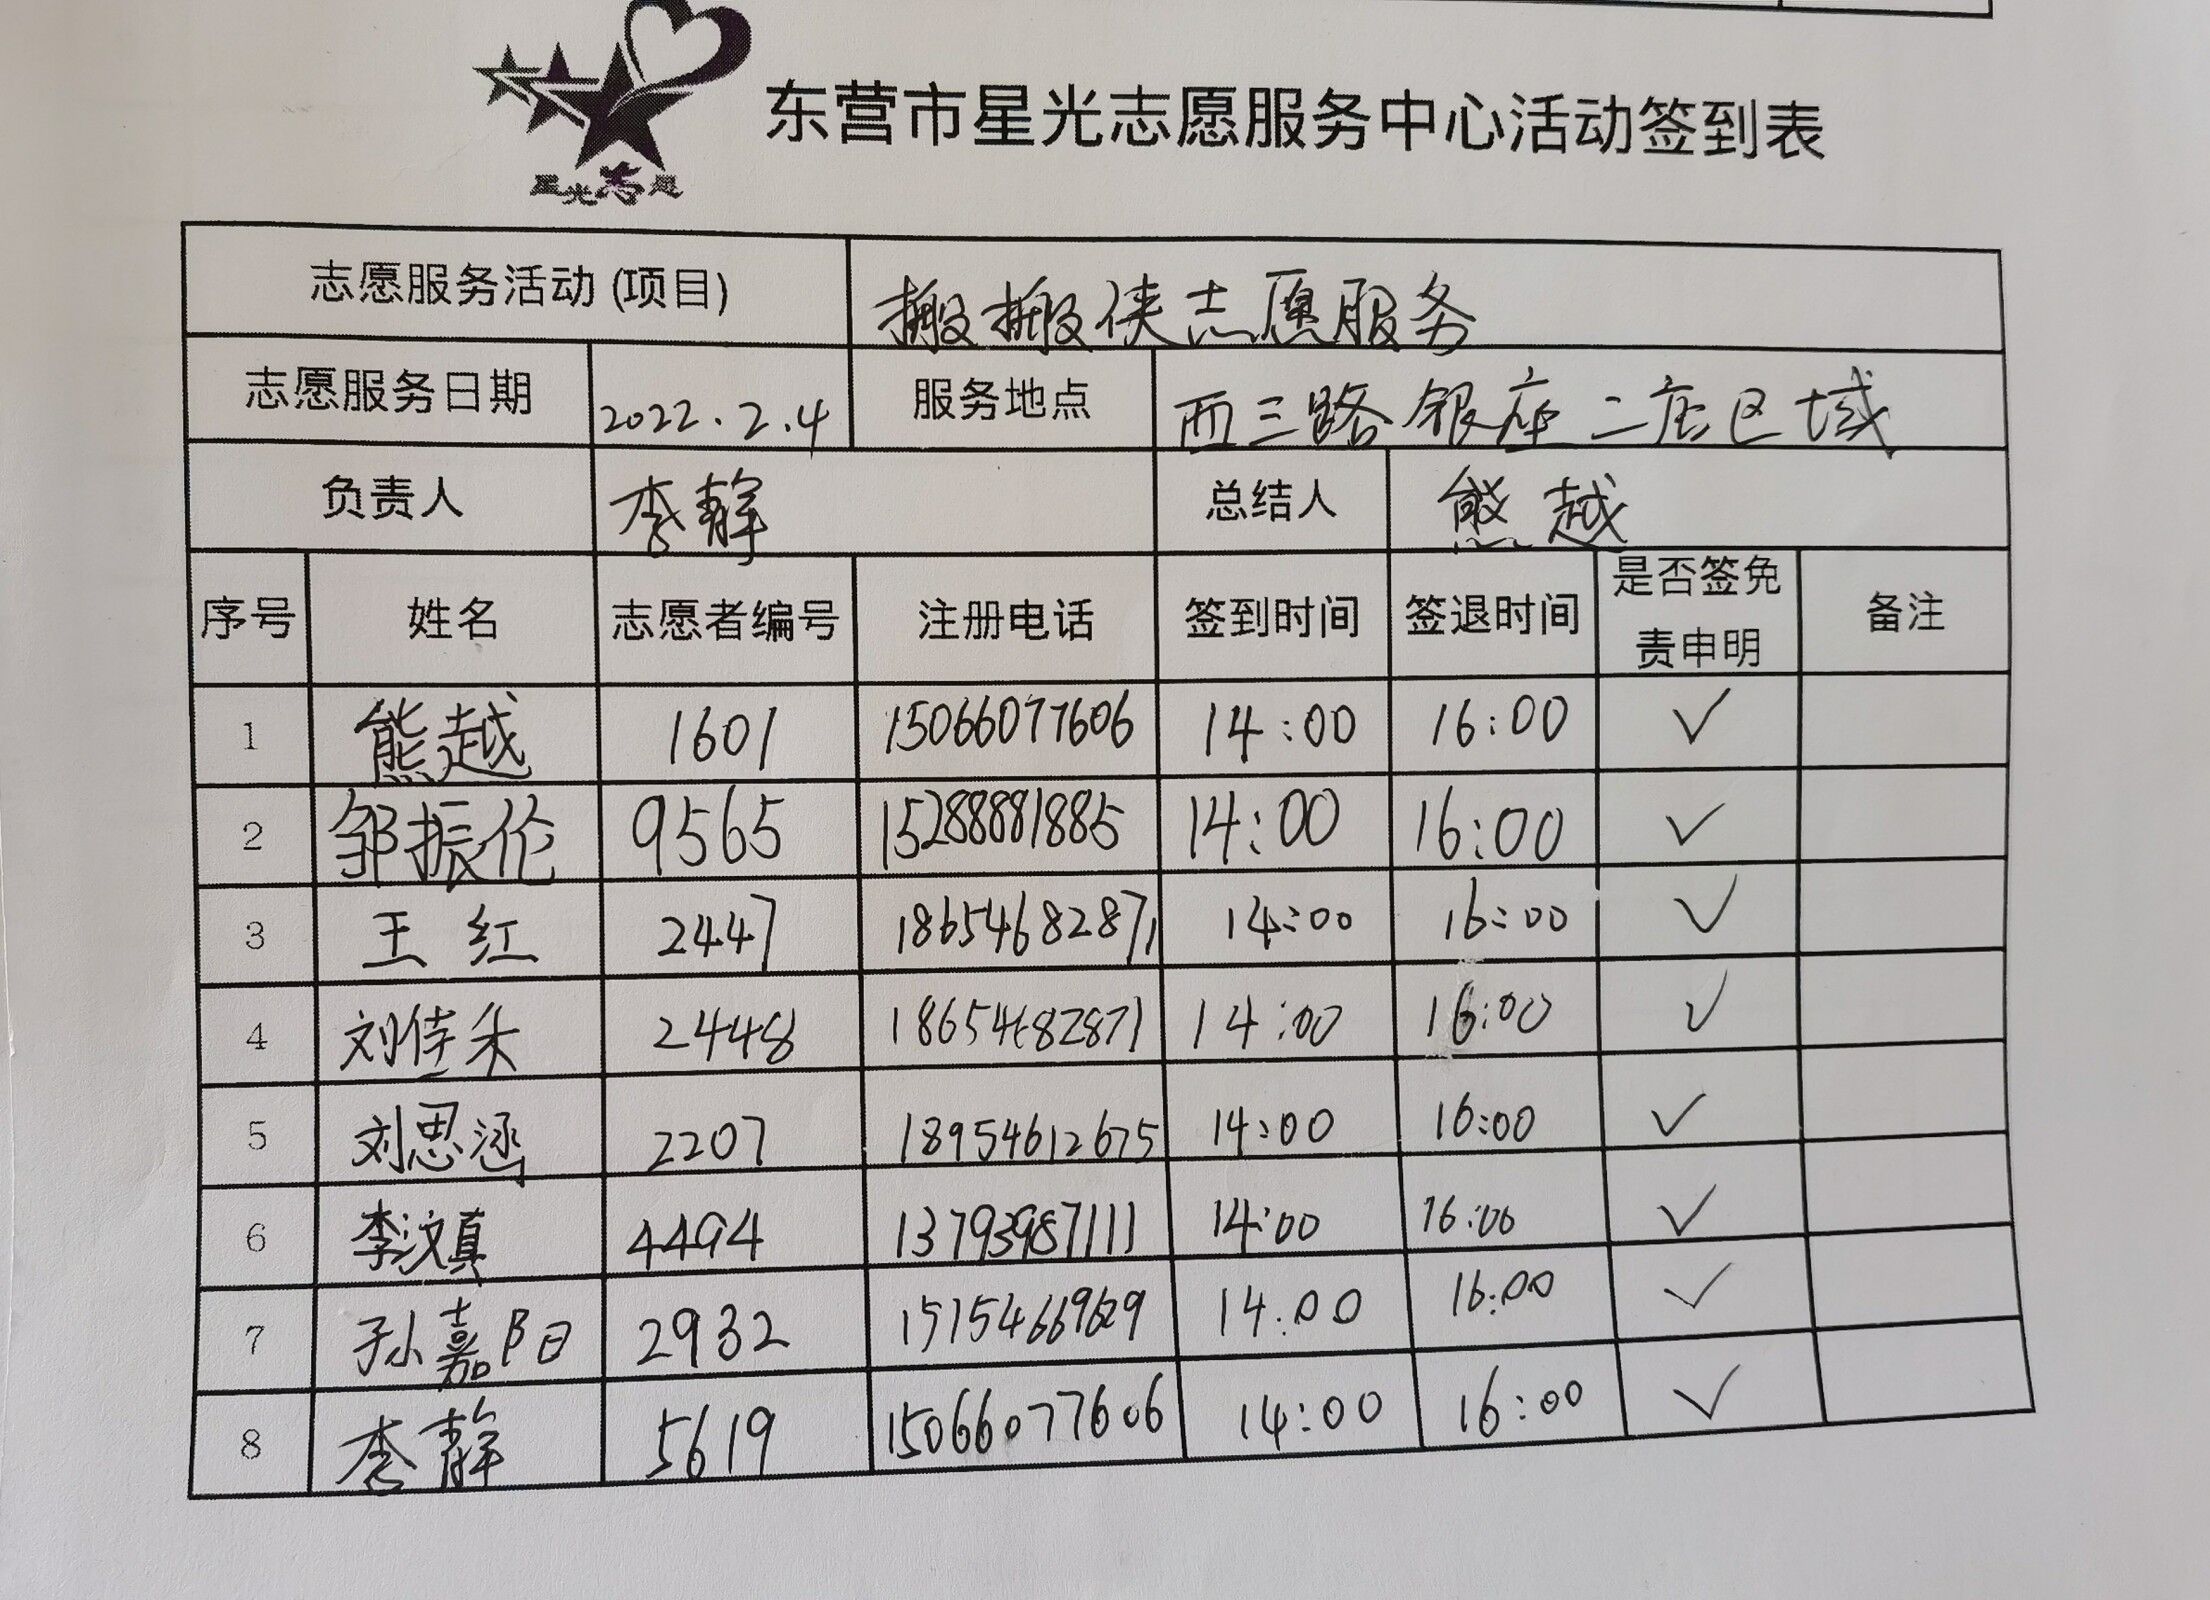 星光志愿
东营市星光志愿服务中心活动签到表
志愿服务活动(项目) 搬搬侠志愿服务
志愿服务日期 2022.2.4 服务地点 西三路银座二店区域
负责人 李静 总结人 熊越
序号 姓名 志愿者编号 注册电话 签到时间 签退时间 是否签免责申明 备注
1 熊越 1601 15066077606 14:00 16:00 ✓
2 邹振伦 9565 15288881885 14:00 16:00 ✓
3 王红 2447 18654682871 14:00 16:00 ✓
4 刘佳禾 2448 18654682871 14:00 16:00 ✓
5 刘思涵 2207 18954612675 14:00 16:00 ✓
6 李汶真 4494 13793987111 14:00 16:00 ✓
7 孙嘉阳 2932 15154669629 14:00 16:00 ✓
8 李静 5619 15066077606 14:00 16:00 ✓